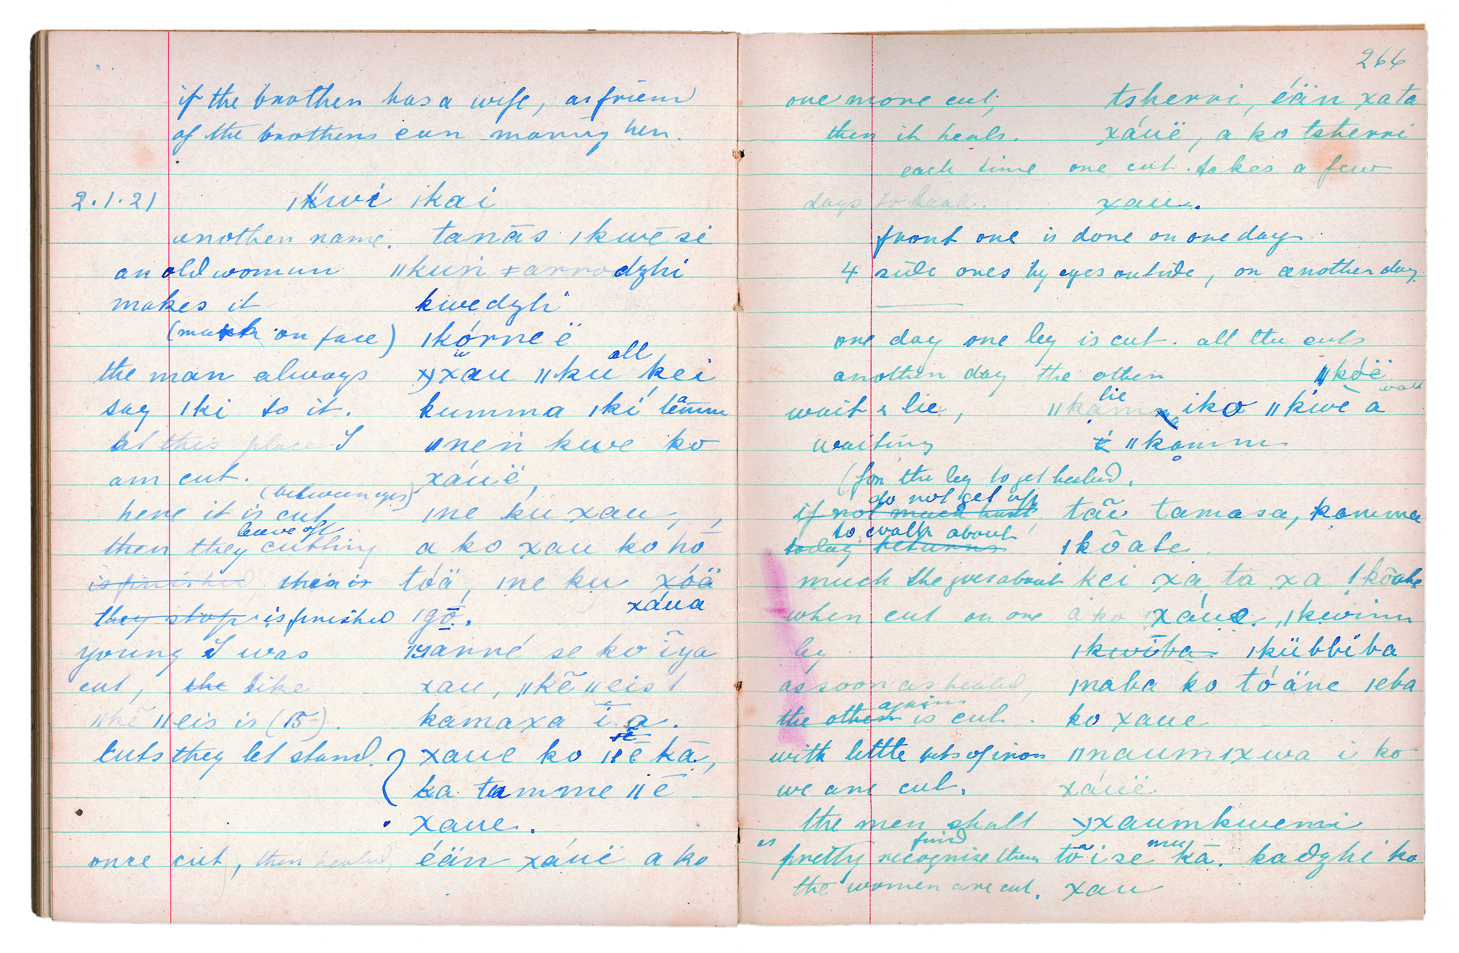 if the brother has a wife, a friend
of the brothers can marry her.
2.1.21 ǀkwi ǀkai
another name. tanās ǀkwesi
an old woman ǁkun ǂarrodzhi
makes it kwedzhi
(mark on face) ǀkórne ë
all
the man always xau ǁku kei
say ǀki to it. kumma ǀkí tamm
at this place I ǁneń kwe ko
am cut. xáuë,
(between eyes)
here it is cut ǀne ku xau
leave off
then they cutting a ko xau ko hō
is finished, then is tóä, ǀne ku xóä
xáua
they stop is finished ǀgō.
young I was ǃgarré se ko ĩya
cut, the like xau, ǁkē ǁeis ǀ
ǁkē ǁeis is (15-). kamaxa ĩ a.
cuts they let stand. xaue ko ǁē kā,
ka tamme ǁē
xaue.
once cut, then healed éän xáuë a ko
266
one more cut, tsherri, éän xata
then it heals. xáuë, a ko tsherri
each time one cut takes a few
days to heal. xau.
front one is done on one day
4 side ones by eyes outside, on another day.
one day one leg is cut. all the cuts
another day the other ǁkóë
lie walk
wait & lie, ǁkam ǀko ǁkwē a
waiting ǁkamm
(for the leg to get healed.
do not get up
if not much hurt tãi tamasa, kamma
to walk about
today returns ǀkōate
much she goes about kei xa ta xa ǀkōate
when cut on one a ko xáue, ǀkwinn
leg ǀkwōba ǀkübbiba
as soon as healed, ǀnaba ko tóäne ǀeba
again
the other is cut. ko xaue
with little bits of iron ǁnaumǀxwa i ko
we are cut. xáuë
the men shall xaumkwemi
find mu
pretty recognise them tõi se kā. kadzhi ko
the women are cut. xau